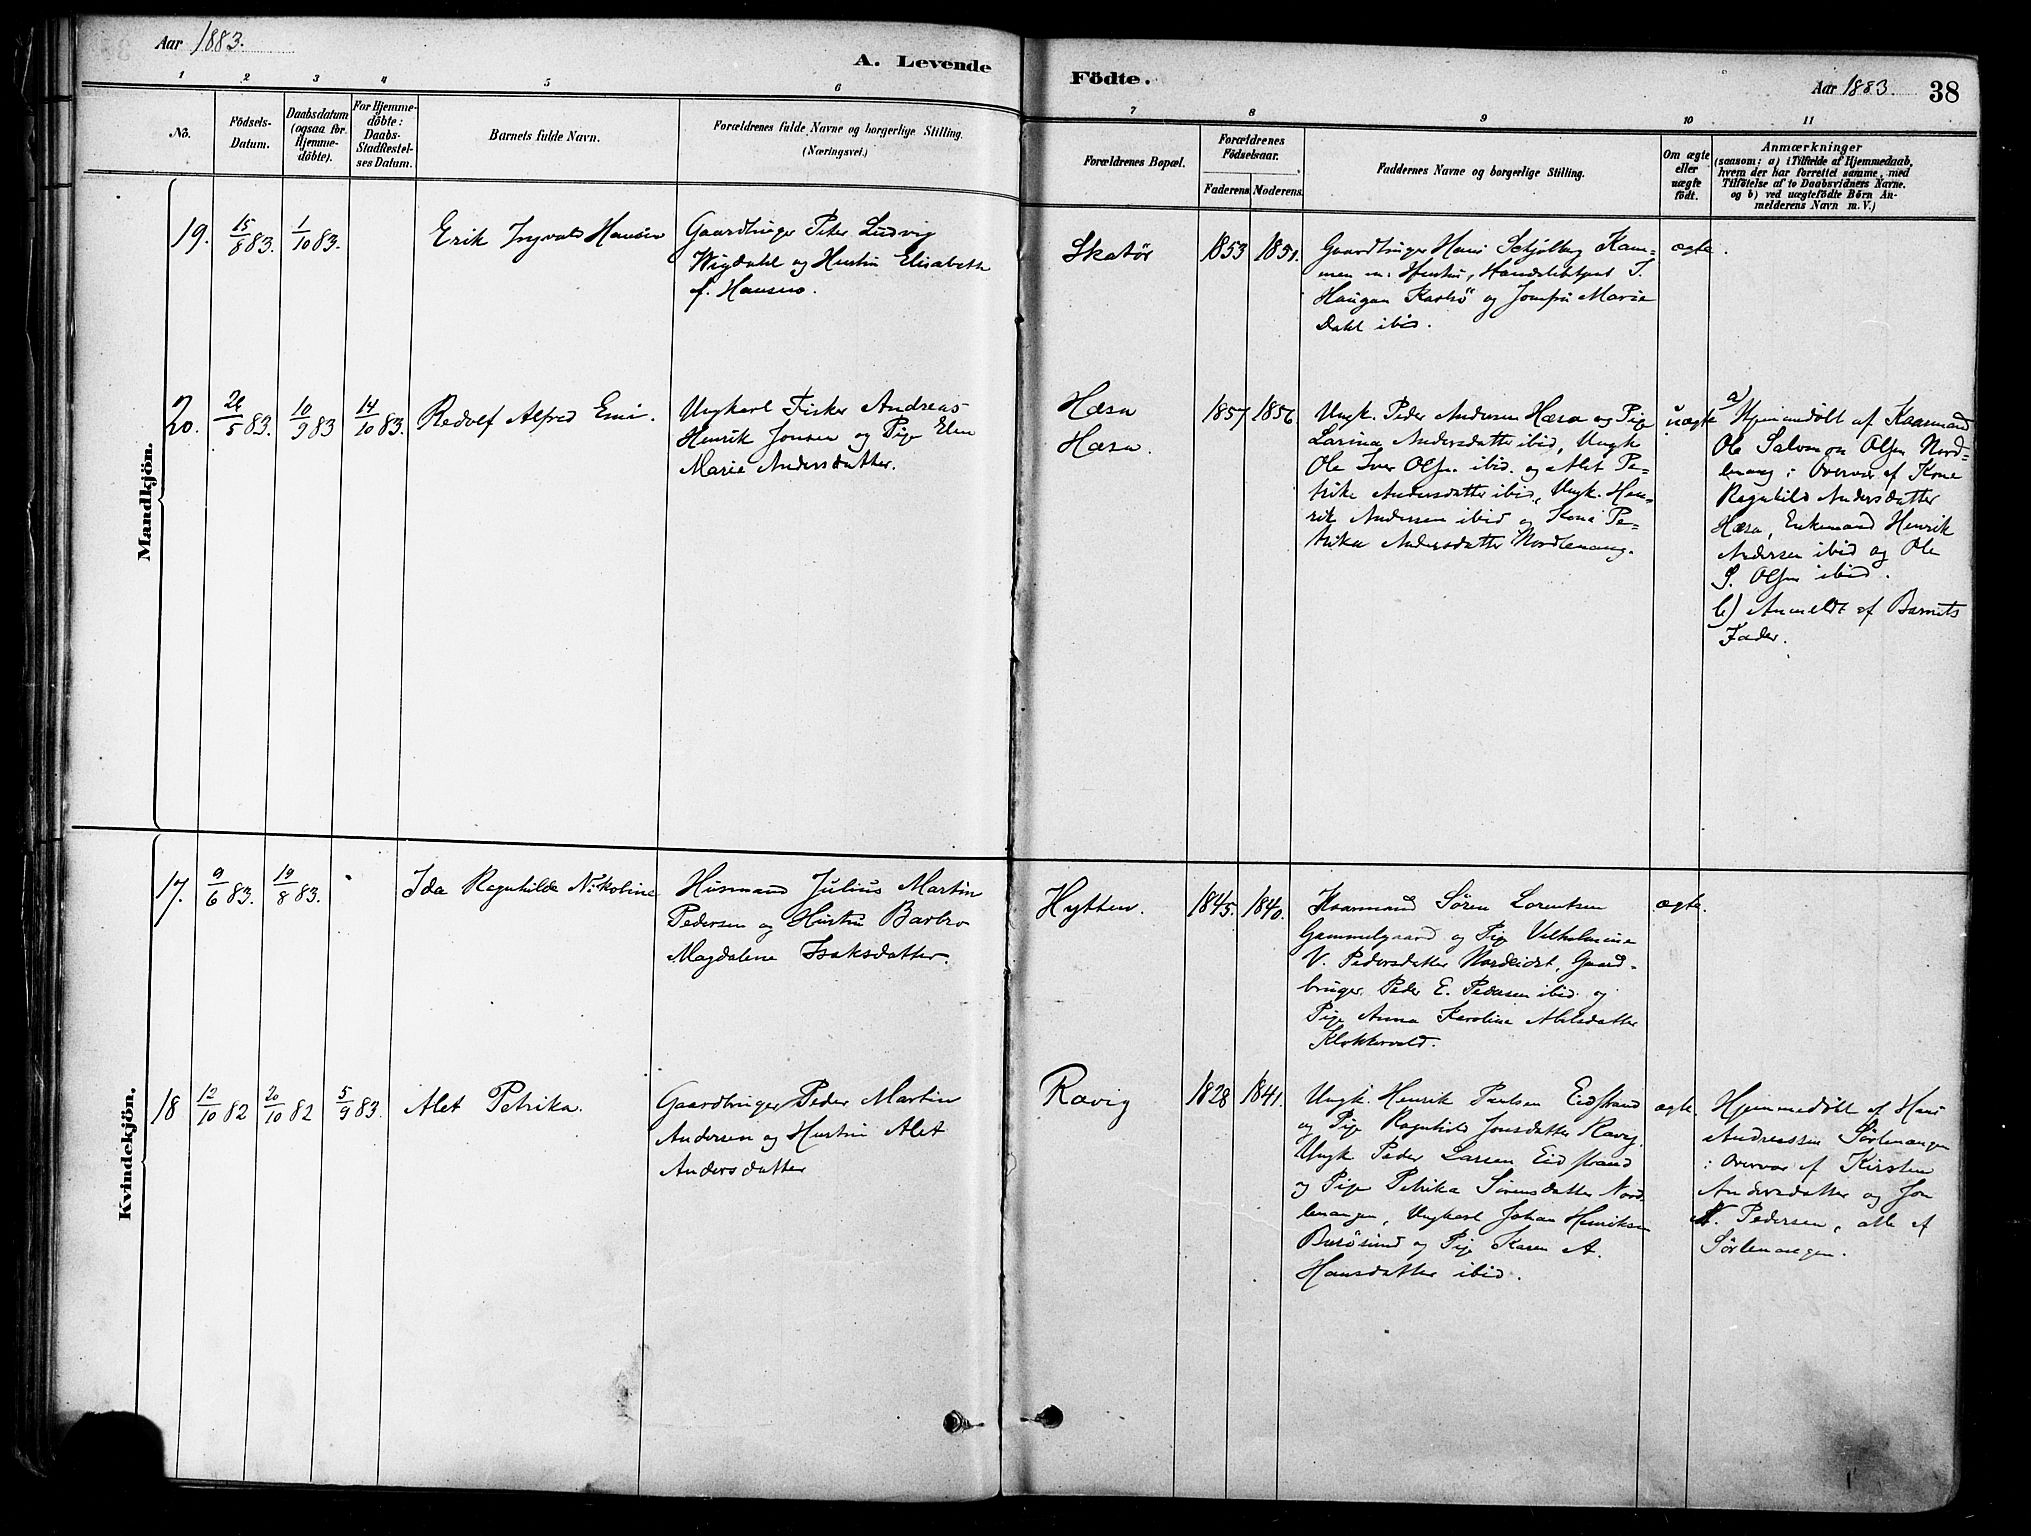 Aar 1883.
A. Levende
Födte.
Aar 1883.
38
1 2 3 4 5 6
7 8 9 10 11
No.
Födsels-
Datum.
Daabsdatum
(ogsaa for
Hjemme-
döbte).
For Hjemme-
döbte:
Daabs-
Stadfæstel-
ses Datum.
Barnets fulde Navn.
Forældrenes fulde Navne og borgerlige Stilling.
(Næringsvei.)
Forældrenes Bopæl.
Forældrenes
Födselsaar.
Faderens. Moderens.
Faddernes Navne og borgerlige Stilling.
Om ægte
eller
uægte
født.
Anmærkninger
(saasom: a) i Tilfælde af Hjemmedaab,
hvem der har forrettet samme, med
Tilföielse af to Daabsvidners Navne.
og b) ved uægtefödte Börn An-
melderens Navn m. V.)
Mandkjön.
19.
15/8 83.
1/10 83.
Erik Ingvald Hansen
Gaardbruger Peter Ludvig
Wigdahl og Hustru Elisabeth
f. Hansen.
Skatør
1853
1851.
Gaardbruger Hans
m. Hustru,
Haugan Karlsö og Jomfru Marie
Dahl ibid.
ægte.
20.
26/5 83.
10/9 83
14/10 83.
Redolf Alfred Emil.
Ungkarl Fisker Andreas
Henrik Jonsen og Pige Elen
Marie Andersdatter.
Hæsa
Hæsa
1857
1856
Ungk. Peder Andersen Hæsa og Pige
Larina Andersdatter ibid, Ungk
Ole Iver Olsen ibid. og Alet Pe-
trike Andersdatter ibid, Ungk. Hen-
rik Andersen ibid og Kone Pe-
trika Andersdatter Nordlenang.
uægte
a)
Hjemmedøbt af Kaarmand
Ole Salomon Olsen Nord-
lenang i Overvær af Kone
Ragnhild Andersdatter
Hæsa, Enkemand Henrik
Andersen ibid og Ole
S. Olsen ibid.
b) Anmeldt af Barnets
Fader.
Kvindekjön.
17.
9/6 83.
19/8 83.
Ida Ragnhilde Nikoline
Husmand Julius Martin
Pedersen og Hustru Barbro
Magdalene Isaksdatter.
Hytten.
1845.
1840.
Kaarmand Søren Lorentsen
Gammelgaard og Pige Vilhelmine
V. Pedersdatter Nordeidet, Gaard-
bruger Peder E. Pedersen ibid. og
Pige Anna Karoline Abelsdatter
Klokkervold.
ægte.
18
12/10 82
20/10 82
5/9 83.
Alet Petrika.
Gaardbruger Peder Martin
Andersen og Hustru Alet
Andersdatter
Ravig
1828
1841.
Ungk. Henrik Paulsen Eidstrand
og Pige Ragnhild Jonsdatter Ravig,
Ungk Peder Larsen Eidstrand
og Pige Petrika Sørensdatter Nord-
lenangen, Ungkarl Johan Henriksen
Burösund og Pige Karen A.
Hansdatter ibid.
ægte.
Hjemmedøbt af Hans
Andreassen Sörlenangen
i Overvær af Kirsten
Andersdatter og Jon
N. Pedersen, alle af
Sörlenangen.